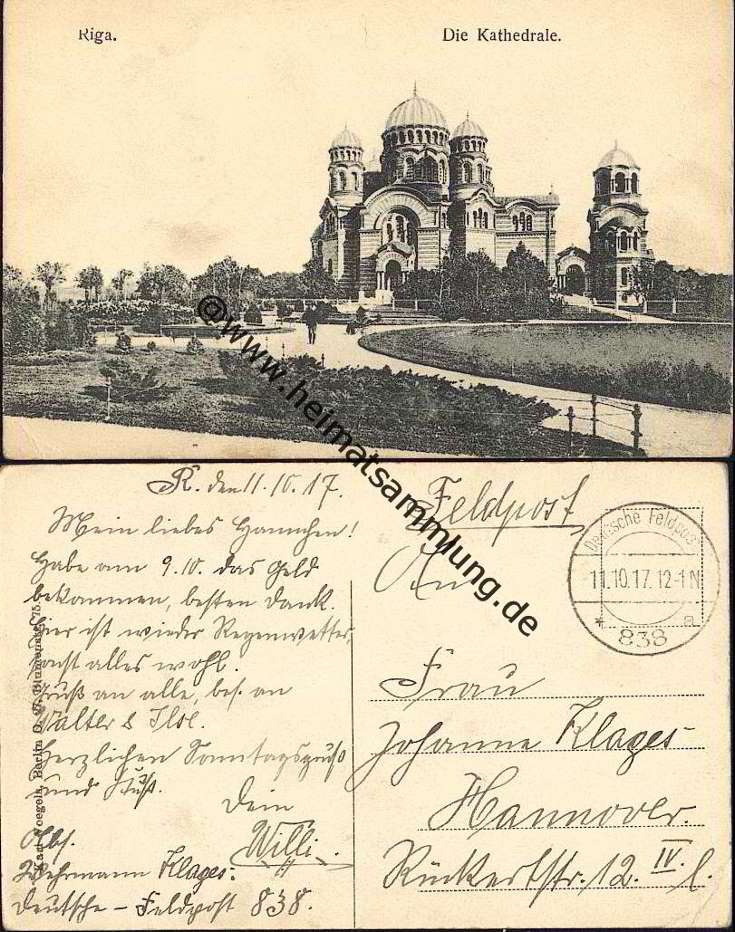 Riga.
Die Kathedrale.
@www.heimatsammlung.de
R. den 11.10.17.
Mein liebes Hannchen!
Habe am 9.10. das Geld
bekommen, besten Dank.
Hier ist wieder Regenwetter,
sonst alles wohl.
Gruß an alle, bes. an
Walter & Ilse.
Herzlichen Sonntagsgruß
und Kuß.
Dein
Willi.
Abs.
Wehrmann Klages.
Deutsche - Feldpost 838.
Feldpost
An
Deutsche Feldpost
11.10.17. 12-1 N
* 838 a
Frau
Johanne Klages
Hannover.
Rückertstr. 12. IV. l.
Karl Voegels, Berlin O. 27, Blumenstr. 75.